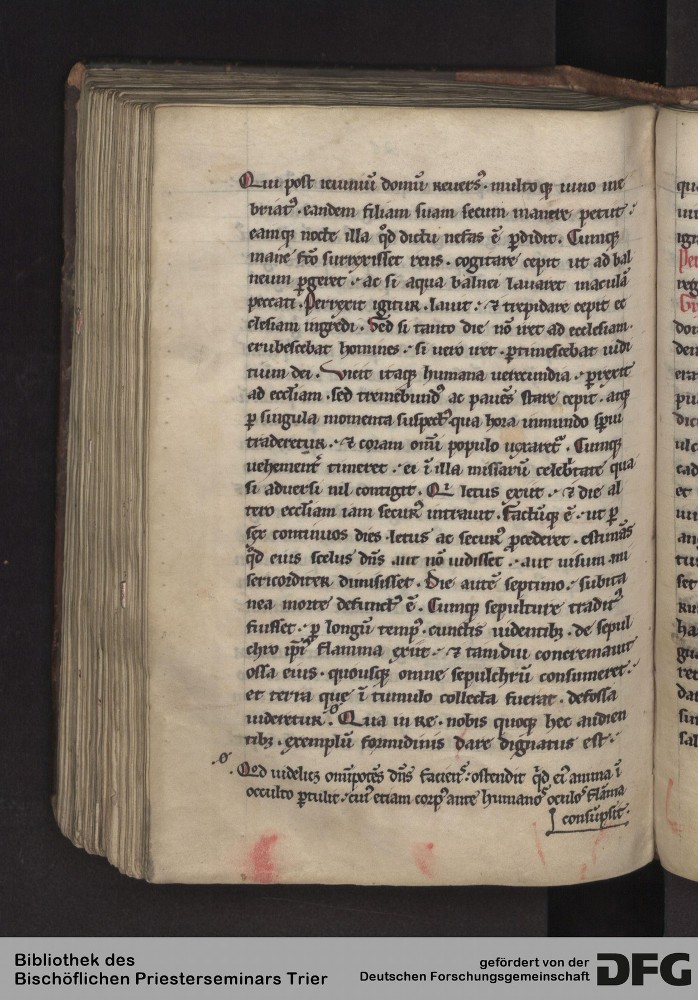 Qui post ieiuniū domū reuers᷒ · multoq; uino ine
briat᷒ · eandem filiam suam secum manere petiit :
eamq; nocte illa qd̄ dictu nefas ē ꝑdidit . Cumq;
mane fc̄o surrexisset reus · cogitare cepit ut ad bal
neum ꝑgeret · ac si aqua balnei lauaret maculā
peccati . Perrexit igitur · lauit · ⁊ trepidare cepit ec
clesiam ingredi . Sed si tanto die nō iret ad ecclesiam ·
erubescebat homines · si uero iret · ꝑtimescebat iudi
tium dei . Uicit itaq; humana uerecundia · ꝑrexit
ad eccl̄iam · sed tremebund᷒ ac pauēs stare cepit · atq;
ꝑ singula momenta suspect᷒ qua hora inmundo sp̄ui
traderetur · ⁊ coram om̄i populo uexaret᷒ . Cumq;
uehement᷒ timeret · ei ī illa missarū celebr̄tate quā
si aduersi nil contigit . Qi letus exiit · ⁊ die al
tero eccl̄iam iam secur᷒ intrauit . Factūq; ē · ut ꝑ
sex continuos dies · letus ac secur᷒ ꝓcederet · estimās
qd̄ eius scelus dn̄s aut nō uidisset · aut uisum mi
sericorditer dimisisset . Die autē septimo · subita
nea morte defunct᷒ ē . Cumq; sepulture tradit᷒
fuisset · ꝑ longū temp᷒ · cunctis uidentib; · de sepul
chro ip̄i᷒ flamma exiit · ⁊ tamdiu concremauit
ossa eius · quousq; omne sepulchrū consumeret ·
et terra que ī tumulo collecta fuerat · defossa
uideretur . Qua in re · nobis quoq; hec audien
tib; · exemplū formidinis dare dignatus est ·
Qod uidelic; om̄ipotēs dn̄s faciens · ostendit qd̄ ei᷒ anima ī
occulto ꝑtulit · cui᷒ etiam corp᷒ ante humanos oculos flāma
consūpsit ·
Bibliothek des
Bischöflichen Priesterseminars Trier
gefördert von der
Deutschen Forschungsgemeinschaft
DFG